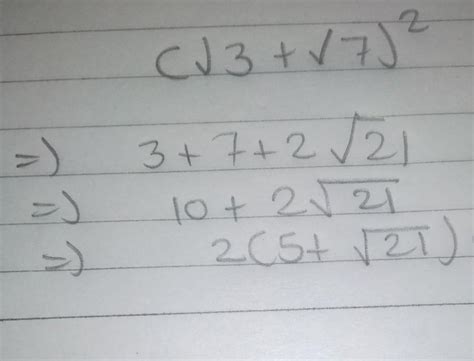 (√3 + √7)²
=) 3 + 7 + 2√21
=) 10 + 2√21
=) 2(5 + √21)